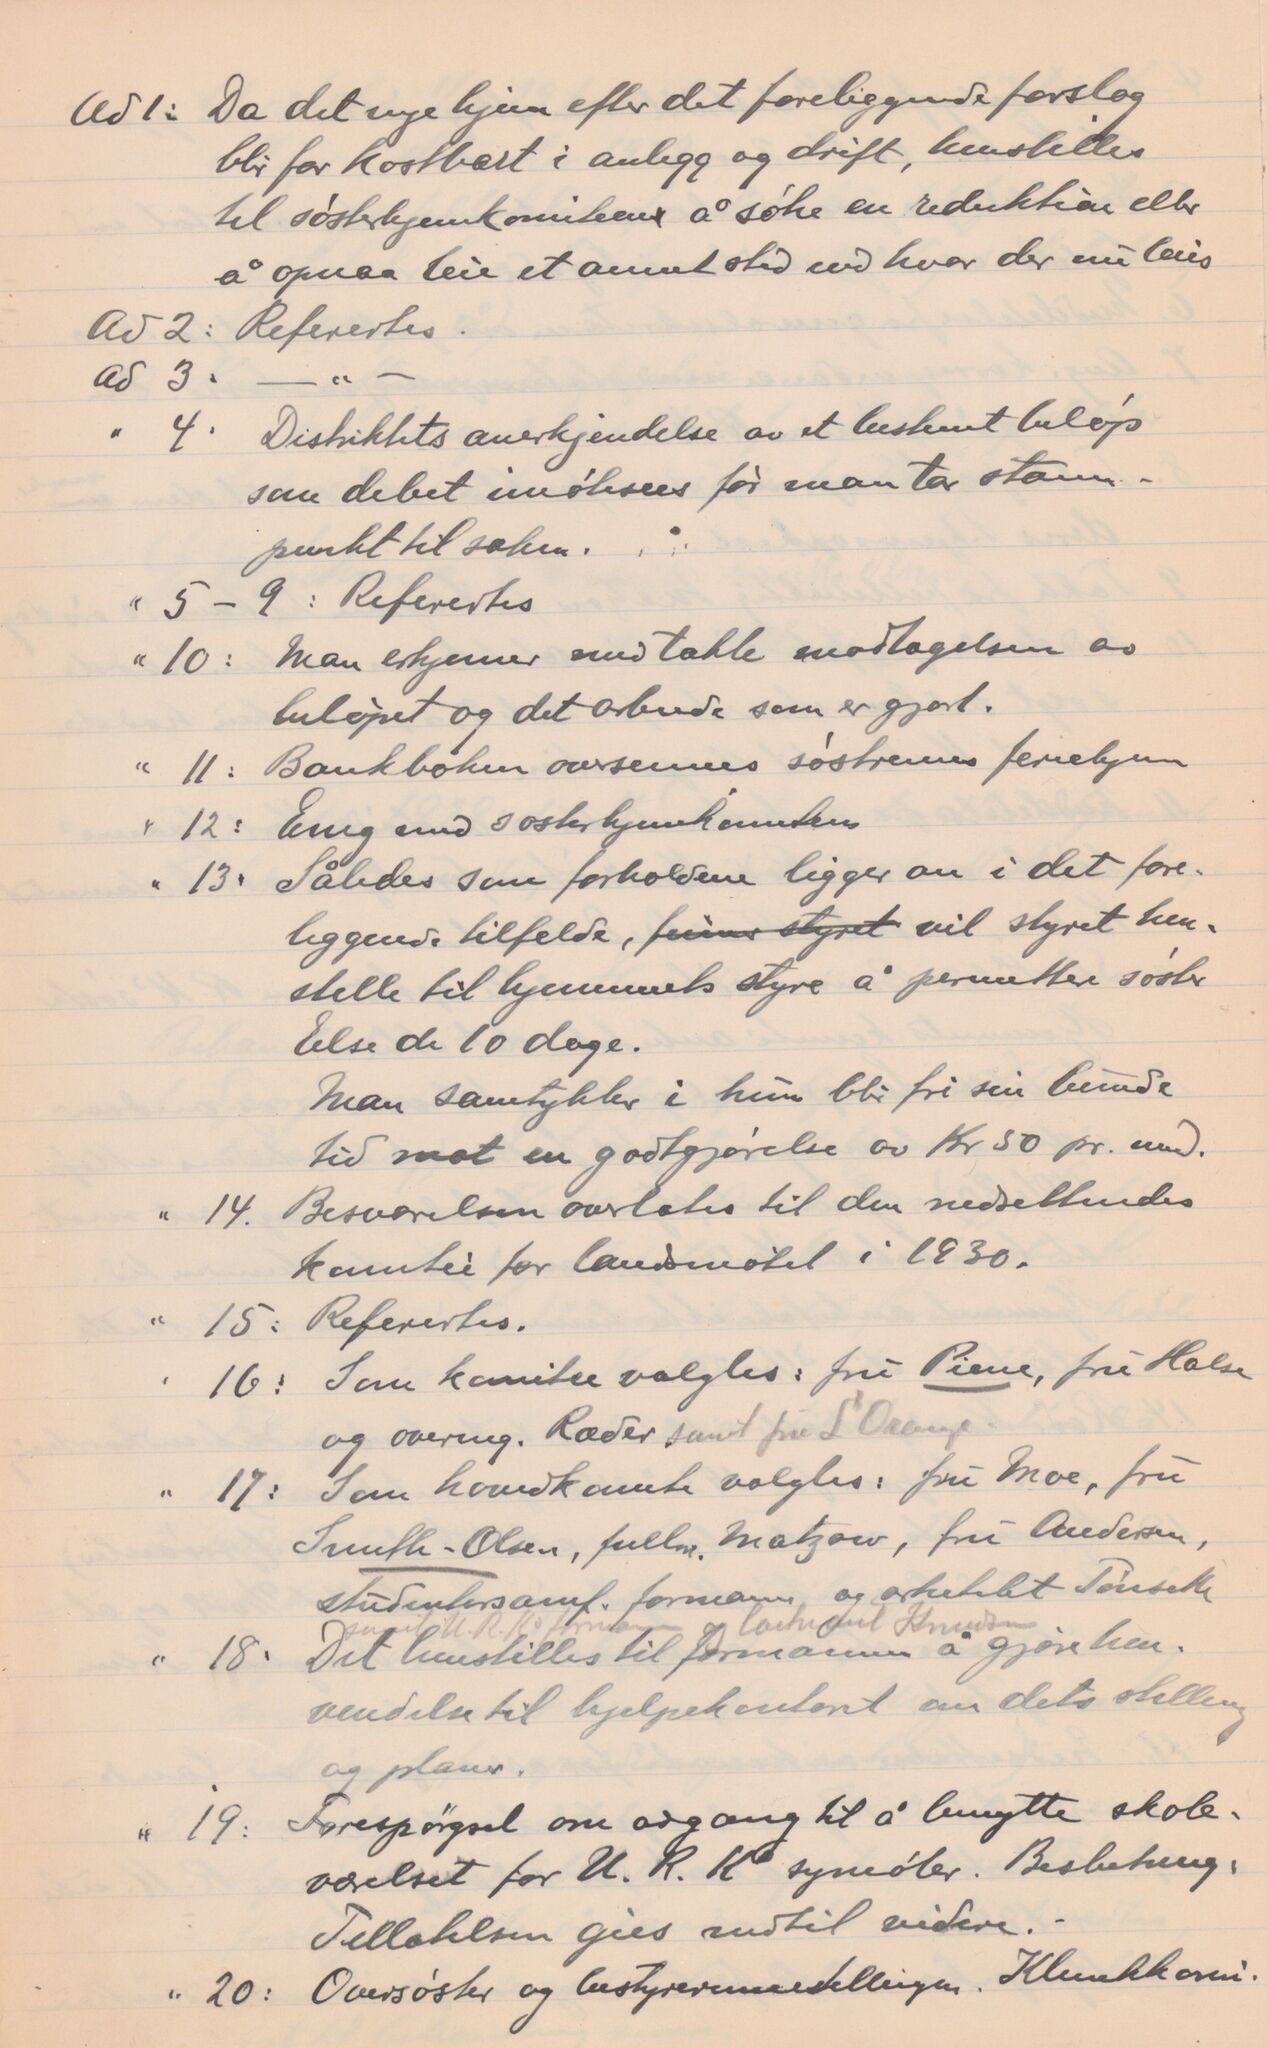 Ad 1: Da det nye hjem efter det foreliggende forslag
blir for kostbart i anlegg og drift, henstilles
til søsterhjemkomiteen å søke en reduktion eller
å opnaa leie et annet sted end hvor der nu leies
Ad 2: Refereres.
Ad 3. — " —
" 4. Distriktets anerkjendelse av et bestemt beløp
som debet imøtesees før man tar stann-
punkt til saken.
" 5 – 9: Refereres
" 10: Man erkjenner med takk modtagelsen av
beløpet og det arbeide som er gjort.
" 11: Bankboken oversennes søstrenes feriehjem
" 12: Enig med søsterhjemkomiteen
" 13. Således som forholdene ligger an i det fore-
liggende tilfelde, finner styret vil styret hen-
stelle til hjemmets styre å permittere søster
Else de 10 dage.
Man samtykker i hun blir fri sin bunde
tid mot en godtgjørelse av Kr 50 pr. mnd.
" 14. Besvarelsen overlates til den nedsettendes
komitee for landsmøtet i 1930.
" 15: Refereres.
" 16: Som komitee valgtes: fru Piene, fru Halse
og overing. Ræder samt fru L'Orange.
" 17: Som hovedkomite valgtes: fru Moe, fru
Smith-Olsen, fullm. Matzow, fru Andersen,
studentersamf. formann og arkitekt Tønseth
samt U.R.K's formann og løitnant Knudsen
" 18. Det henstilles til formannen å gjøre hen-
vendelse til hjelpekontoret om dets stilling
og planer.
" 19: Forespørgsel om adgang til å benytte skole-
værelset for U.R.K's symøter. Beslutning:
Tillatelsen gies indtil videre.-
" 20: Oversøster og bestyrerinnestillingen. Klinikkomi-